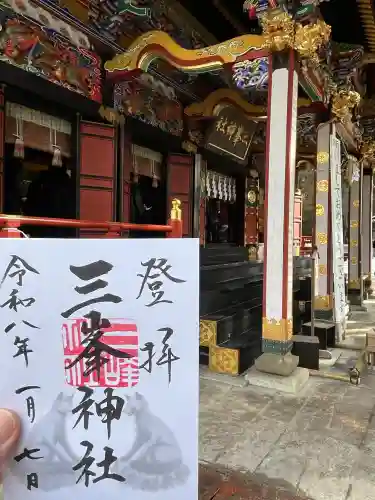 登拝
三峯神社
令和八年一月七日
三峯神社